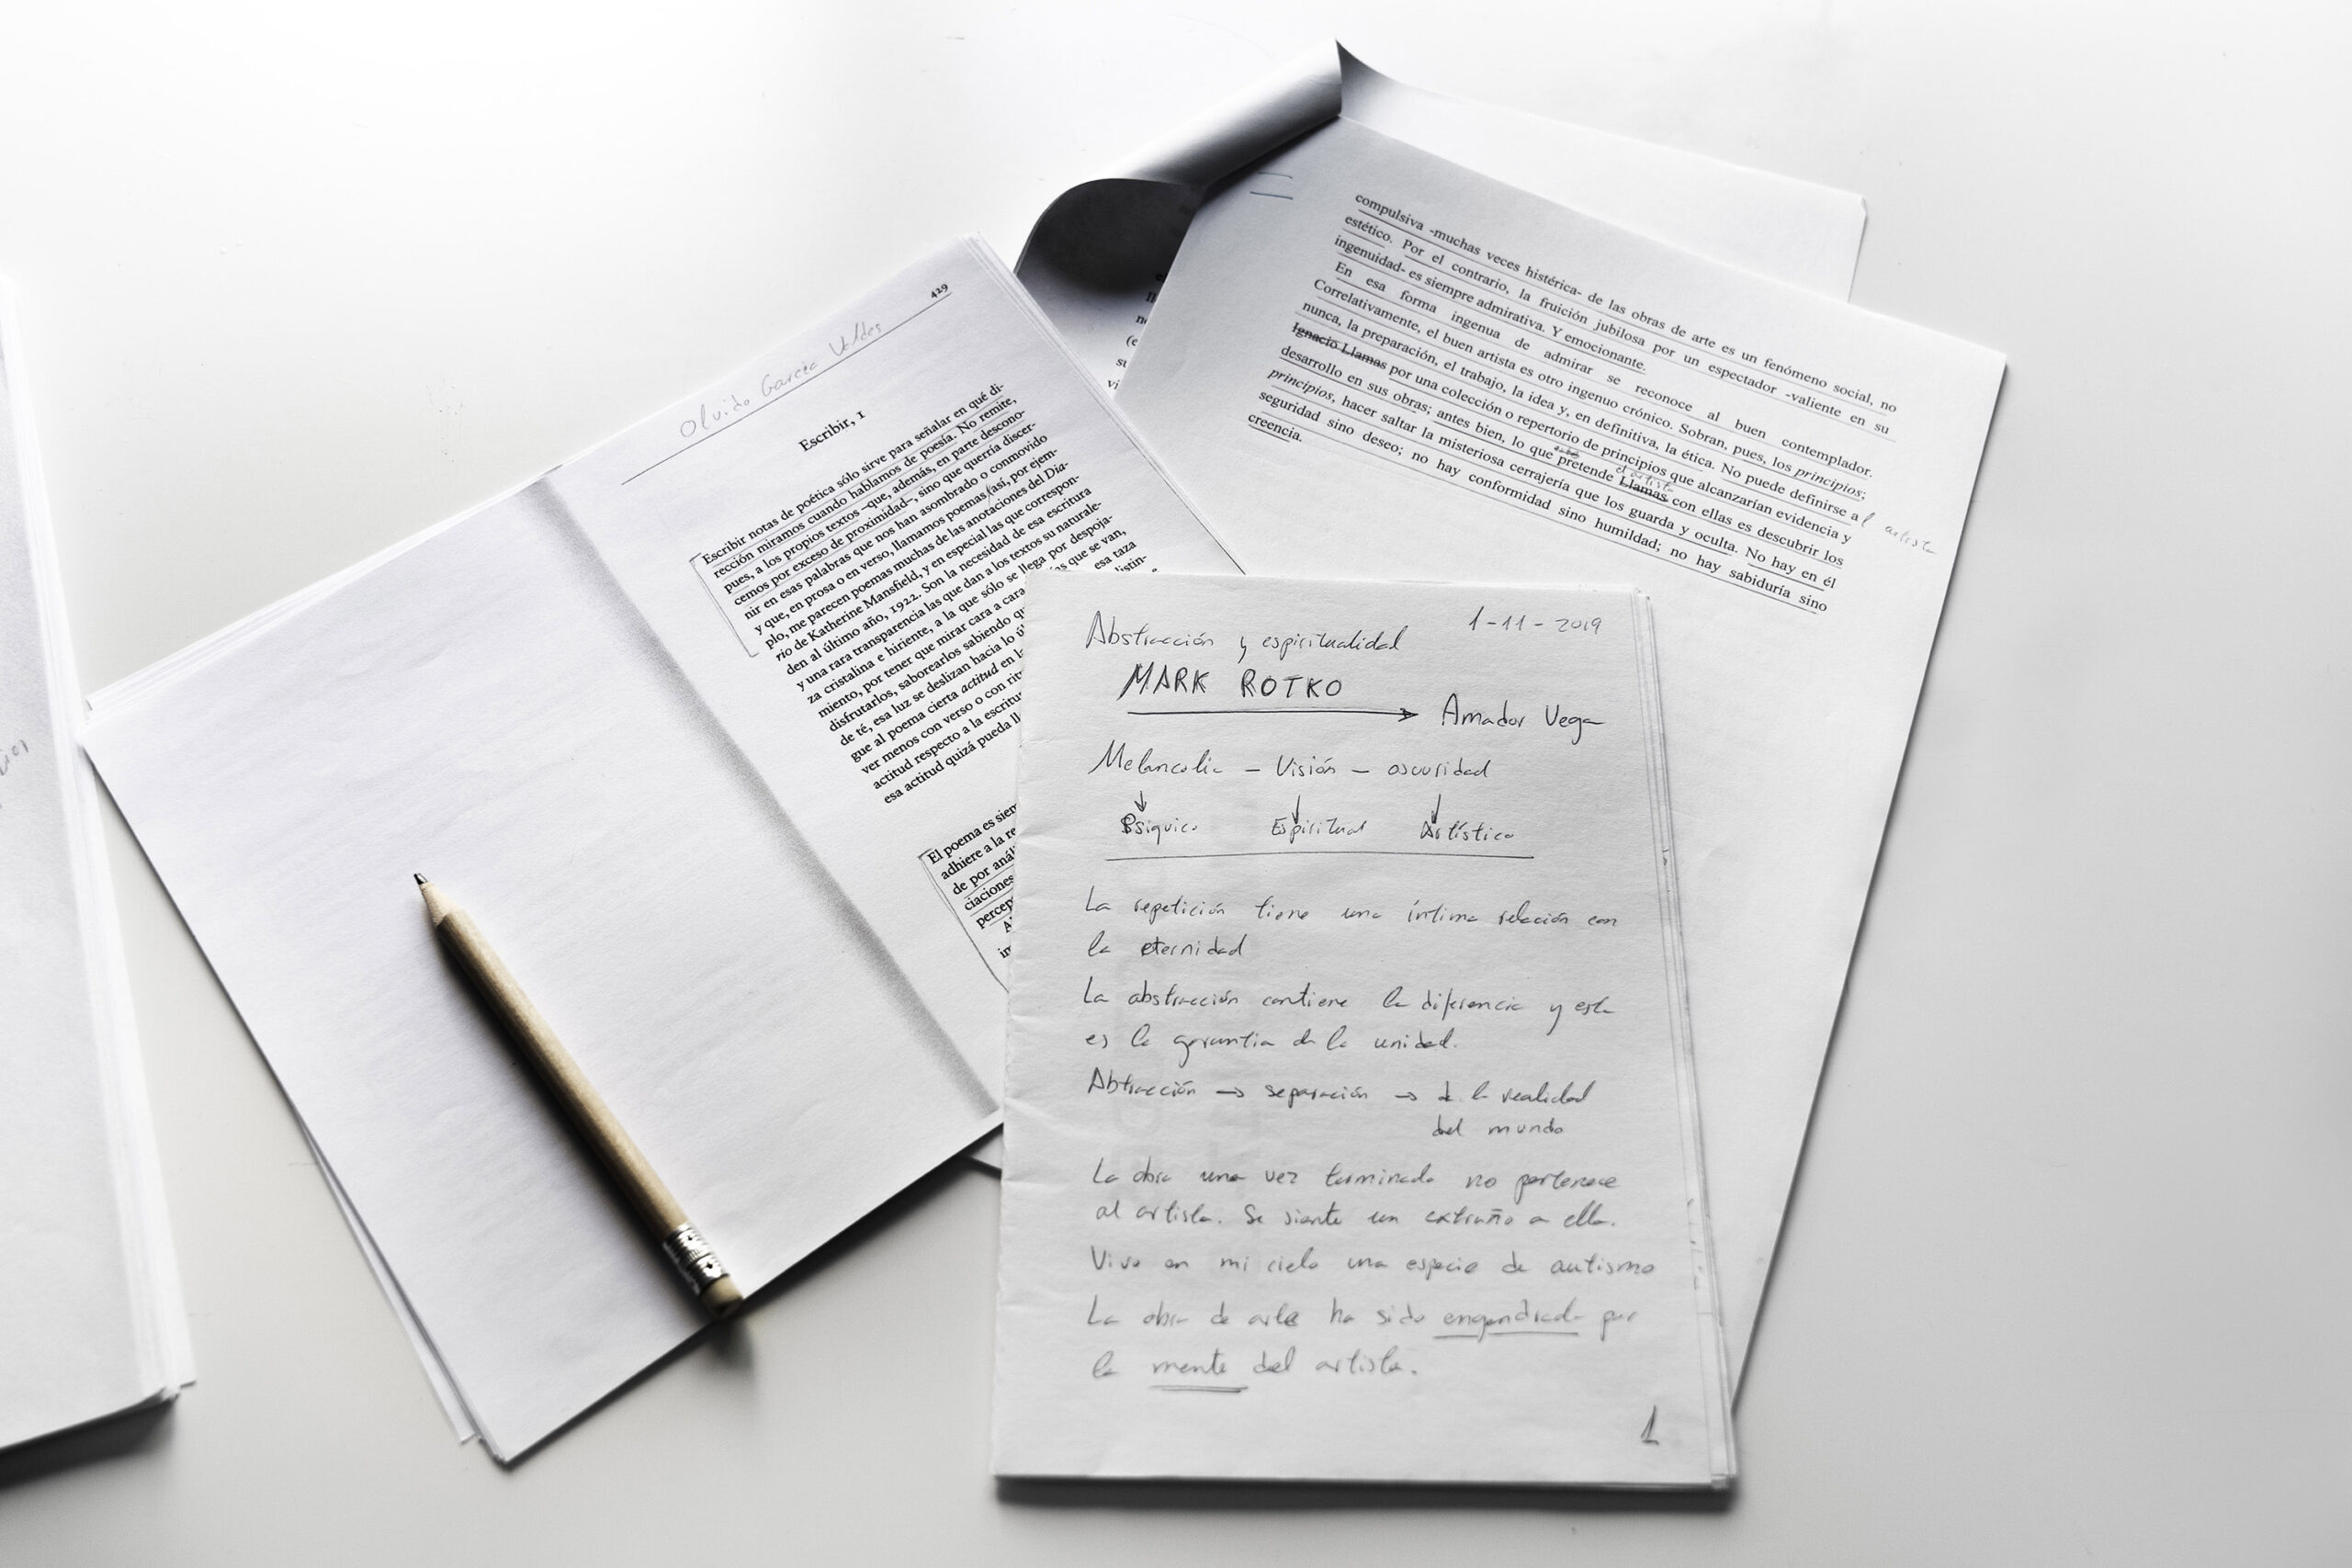 429
Olvido García Valdés
Escribir, 1
Escribir notas de poética sólo sirve para señalar en qué di-
rección miramos cuando hablamos de poesía. No remite,
pues, a los propios textos –que, además, en parte descono-
cemos por exceso de proximidad–, sino que querría discer-
nir en esas palabras que nos han asombrado o conmovido
y que, en prosa o en verso, llamamos poemas (así, por ejem-
plo, me parecen poemas muchas de las anotaciones del Dia-
rio de Katherine Mansfield, y en especial las que correspon-
den al último año, 1922. Son la necesidad de esa escritura
y una rara transparencia las que dan a los textos su naturale-
za cristalina e hiriente, a la que sólo se llega por despoja-
miento, por tener que mirar cara a cara as que se van,
disfrutarlos, saborearlos sabiendo qu esa taza
de té, esa luz se deslizan hacia lo úl istin-
gue al poema cierta actitud en la
ver menos con verso o con rit
actitud respecto a la escritu
esa actitud quizá pueda ll
El poema es siem
adhiere a la re
de por anál
ciaciones
percep
A
in
compulsiva -muchas veces histérica- de las obras de arte es un fenómeno social, no
estético. Por el contrario, la fruición jubilosa por un espectador -valiente en su
ingenuidad- es siempre admirativa. Y emocionante.
En esa forma ingenua de admirar se reconoce al buen contemplador.
Correlativamente, el buen artista es otro ingenuo crónico. Sobran, pues, los principios;
nunca, la preparación, el trabajo, la idea y, en definitiva, la ética. No puede definirse al artista
Ignacio Llamas por una colección o repertorio de principios que alcanzarían evidencia y
desarrollo en sus obras; antes bien, lo que pretende Llamas con ellas es descubrir los
el artista
principios, hacer saltar la misteriosa cerrajería que los guarda y oculta. No hay en él
seguridad sino deseo; no hay conformidad sino humildad; no hay sabiduría sino
creencia.
1-11-2019
Abstracción y espiritualidad
MARK ROTKO
→ Amador Vega
Melancolia – Visión – oscuridad
↓ ↓ ↓
Psiquico Espiritual Artístico
La repetición tiene una íntima relación con
la eternidad
La abstracción contiene la diferencia y esta
es la garantia de la unidad.
Abtracción → separación → de la realidad
del mundo
La obra una vez terminada no pertenece
al artista. Se siente un extraño a ella.
Vivo en mi cielo una especie de autismo
La obra de arte ha sido engendrada por
la mente del artista.
1